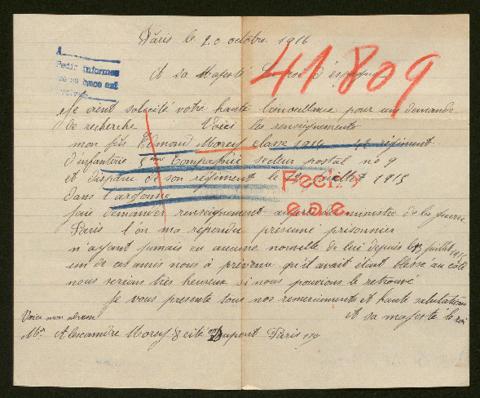 Paris le 20 octobre 1916
A
Pedir informes
41809
A sa Majesté d'espagne
Je vient solicité votre haute bienveillance pour une demande
de recherche Voici les renseignements
mon fils Edmond Morey classe 1914 régiment
d'infanterie 5me Compagnie secteur postal no 9
et disparu de son régiment le juillet 1915
dans l'argonne
Fecha
e.d.e
fait demander renseignement ministre de la guerre
Paris l'on ma répondu présumé prisonnier
n'ayant jamais eu aucune nouvelle de lui depuis juillet 1915
un de ces amis nous à prévenu qu'il avait étant blessé au côté
nous serions très heureux si nous pouvions le retrouvé
Je vous présente tous nos remerciments et haute salutation
Voici mon adresse
et sa majesté le roi
Mr Alexandre Morey 8 cité Dupont Paris